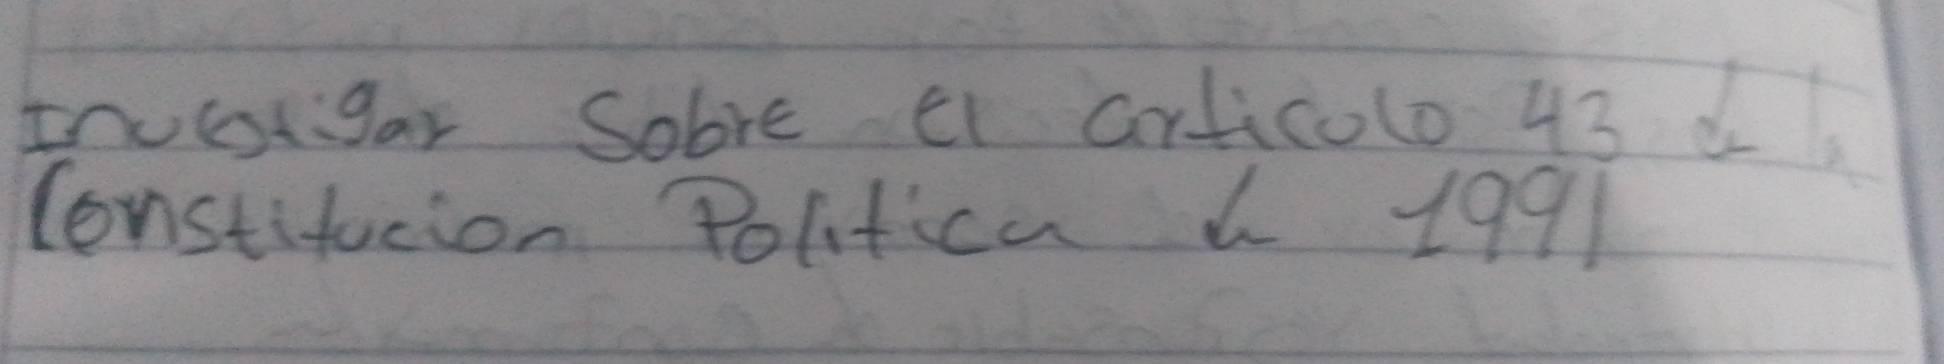 Investigar Sobre el articulo 43 de la
Constitucion Politica de 1991